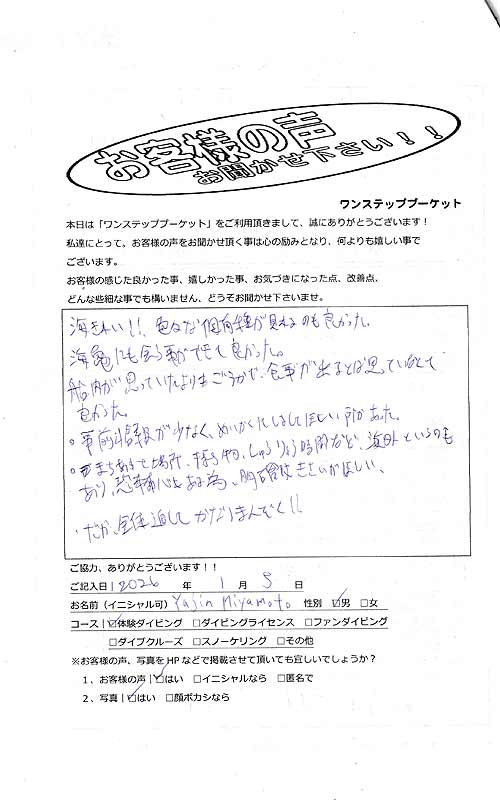 お客様の声
お聞かせ下さい！！
ワンステッププーケット
本日は「ワンステッププーケット」をご利用頂きまして、誠にありがとうございます！
私達にとって。お客様の声をお聞かせ頂く事は心の励みとなり、何よりも嬉しい事で
ございます。
お客様の感じた良かった事、嬉しかった事、お気づきになった点、改善点、
どんな些細な事でも構いません、どうぞお聞かせ下さいませ。
海きれい!! 色々な固有種が見れるのも良かった。
海亀にも会う事ができて良かった。
船内が思っていたよりもごうかで、食事が出るとは思っていなくて
良かった。
。事前情報が少なく、めいかくにしてほしい所があった。
。まちあわせ場所、持ち物、しゅうりょう時間など、海外というのも
あり、恐怖心もある為、明確に
・だが、全体通してかなりまんぞく!!
ご協力、ありがとうございます！！
ご記入日｜2026 年 1 月 5 日
お名前（イニシャル可） Yujin Miyamoto 性別 ☑男 □女
コース｜☑体験ダイビング □ダイビングライセンス □ファンダイビング
□ダイブクルーズ □スノーケリング □その他
※お客様の声、写真をHPなどで掲載させて頂いても宜しいでしょうか？
1、お客様の声｜☑はい □イニシャルなら □匿名で
2、写真｜☑はい □顔ボカシなら